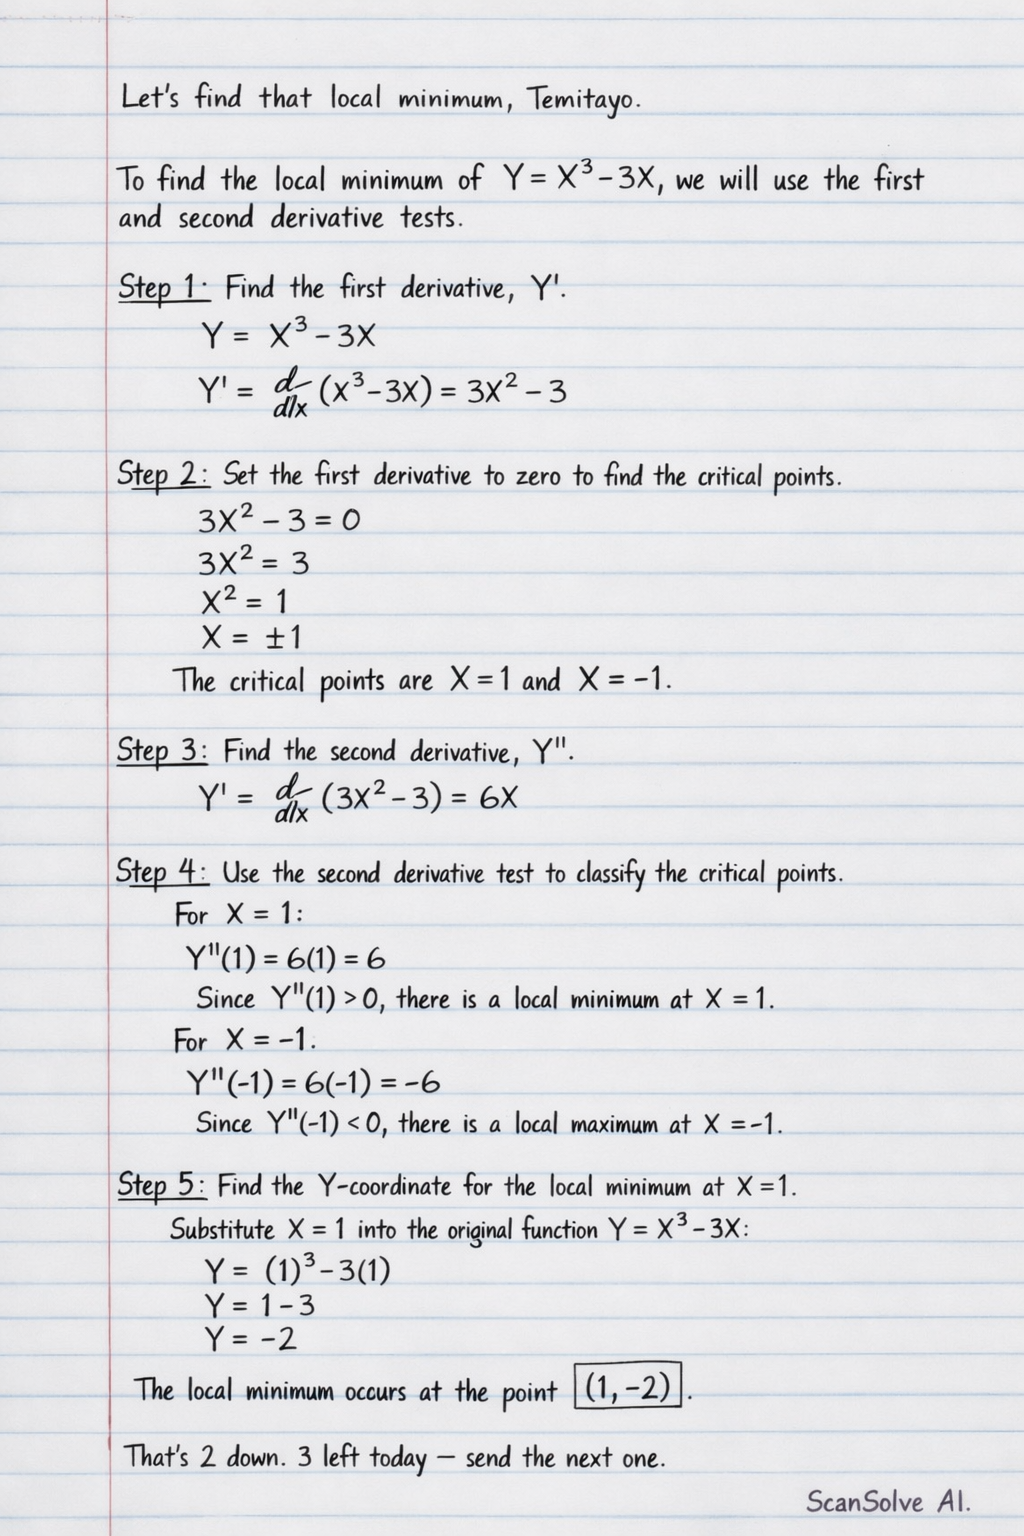 Let's find that local minimum, Temitayo.
To find the local minimum of Y = X³ - 3X, we will use the first
and second derivative tests.
Step 1: Find the first derivative, Y'.
Y = X³ - 3X
Y' = d/dx (x³ - 3X) = 3X² - 3
Step 2: Set the first derivative to zero to find the critical points.
3X² - 3 = 0
3X² = 3
X² = 1
X = ±1
The critical points are X = 1 and X = -1.
Step 3: Find the second derivative, Y''.
Y' = d/dx (3X² - 3) = 6X
Step 4: Use the second derivative test to classify the critical points.
For X = 1:
Y''(1) = 6(1) = 6
Since Y''(1) > 0, there is a local minimum at X = 1.
For X = -1:
Y''(-1) = 6(-1) = -6
Since Y''(-1) < 0, there is a local maximum at X = -1.
Step 5: Find the Y-coordinate for the local minimum at X = 1.
Substitute X = 1 into the original function Y = X³ - 3X:
Y = (1)³ - 3(1)
Y = 1 - 3
Y = -2
The local minimum occurs at the point (1, -2).
That's 2 down. 3 left today — send the next one.
ScanSolve AI.